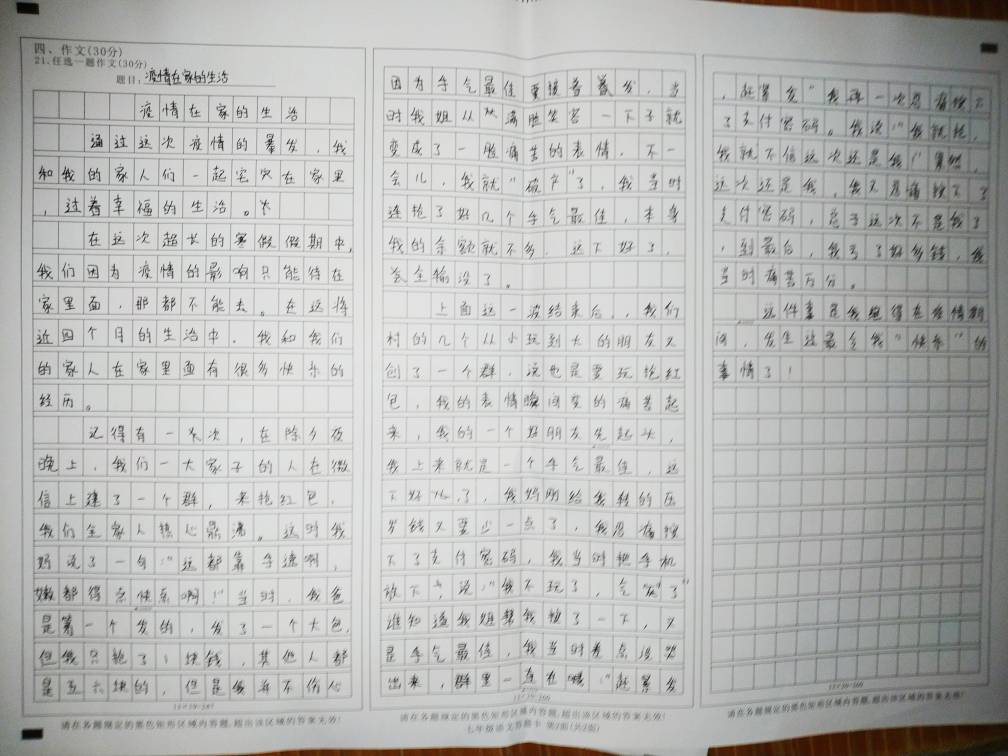 四、作文(30分)
21.任选一题作文(30分)
题目：疫情在家的生活
疫情在家的生活
通过这次疫情的暴发，我
和我的家人们一起宅在家里
，过着幸福的生活。
在这次超长的寒假假期中，
我们因为疫情的影响只能待在
家里面，那都不能去。在这将
近四个月的生活中，我和我们
的家人在家里面有很多快乐的
经历。
记得有一次，在除夕夜
晚上，我们一大家子的人在微
信上建了一个群，来抢红包，
我们全家人热心鼎沸。这时我
妈说了一句：“这都靠手速啊，
都得点快点啊！”当时，我爸
是第一个发的，发了一个大包，
但我只抢了1块钱，其他人都
是五六块的，但是我并不伤心
因为手气最佳要接着发，当
时我姐从满脸笑容一下子就
变成了一脸痛苦的表情，不一
会儿，我就“破产”了，我当时
连抢了好几个手气最佳，本身
我的余额就不多，这下好了，
全输没了。
上面这一波结束后，我们
村的几个从小玩到大的朋友又
创了一个群，说也是要玩抢红
包，我的表情瞬间变的痛苦起
来，我的一个好朋友先起头，
我上来就是一个手气最佳，这
下好了，我妈刚给我转的压
岁钱又要少一点了，我忍痛按
下了支付密码，我当时把手机
放下，说：“我不玩了，气死了”
谁知道我姐帮我抢了一下，又
是手气最佳，我当时差点没哭
出来，群里一直在喊：“赶紧发
，赶紧发”我再一次忍痛按下
了支付密码。我说：“我就抢，
我就不信这次还是我！”果然，
这次还是我，我又忍痛按下了
支付密码，终于这次不是我了
，到最后，我亏了好多钱，我
当时痛苦万分。
这件事是我觉得在疫情期
间，发生过最令我“快乐”的
事情了！
请在各题规定的黑色矩形区域内答题，超出该区域的答案无效！
请在各题规定的黑色矩形区域内答题，超出该区域的答案无效！
七年级语文答题卡 第2面(共2面)
请在各题规定的黑色矩形区域内答题，超出该区域的答案无效！